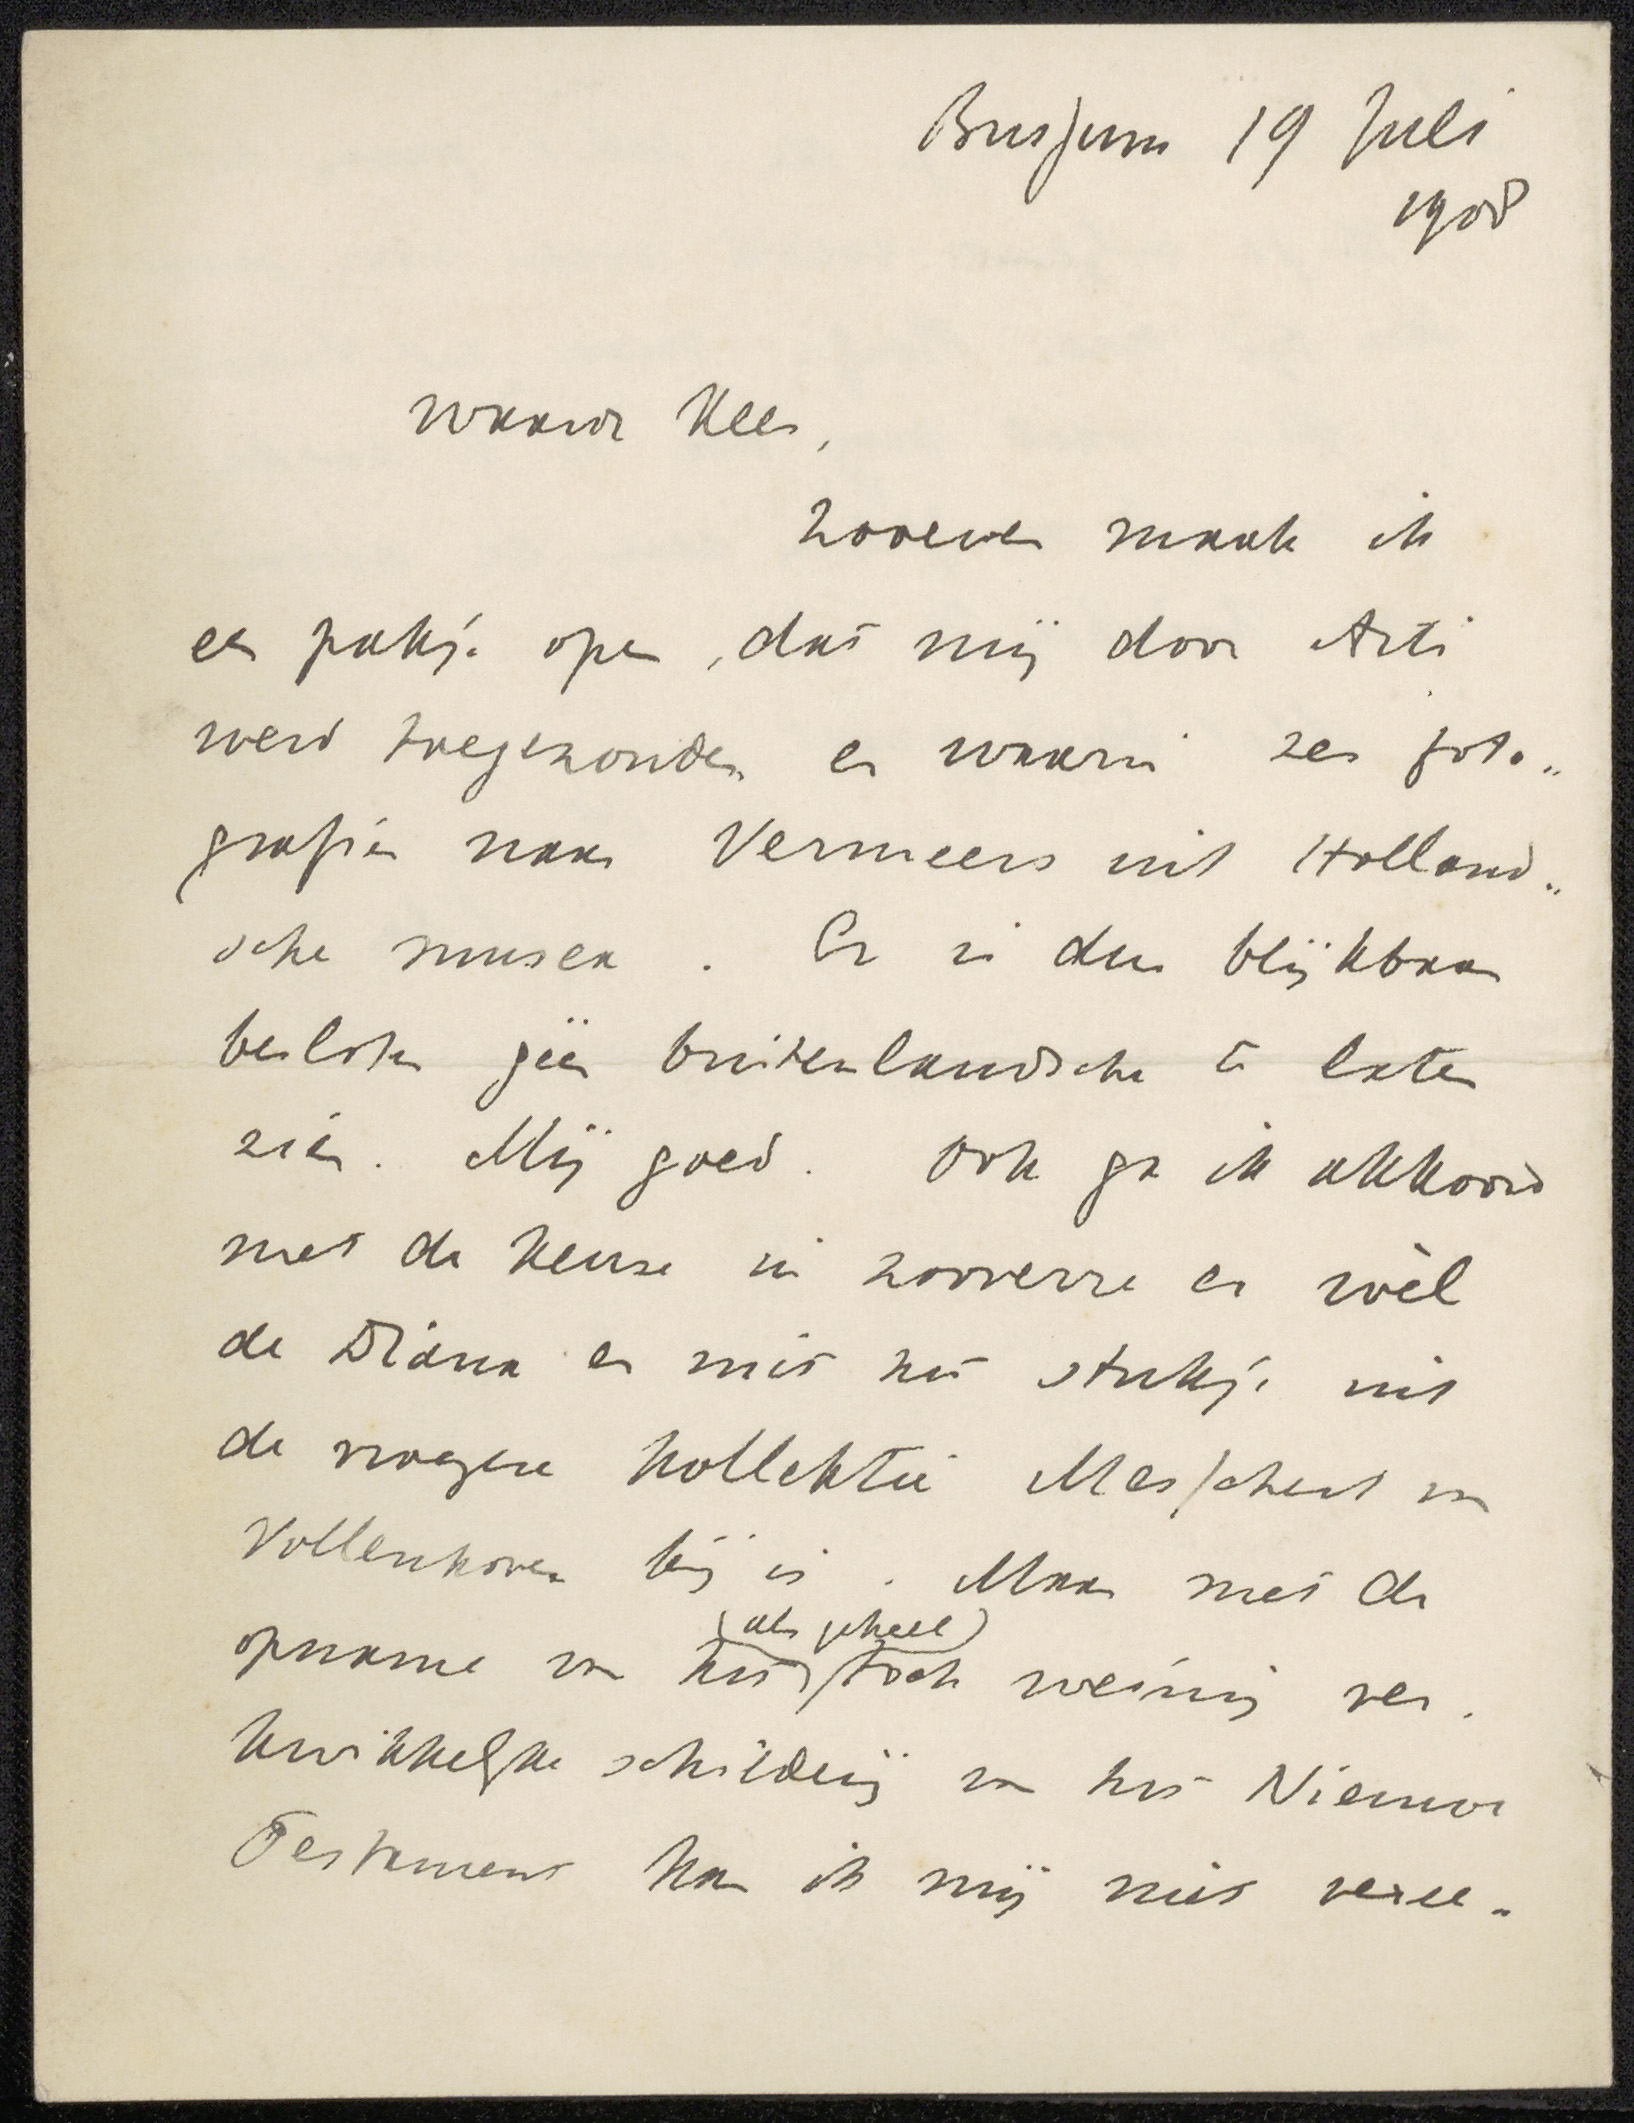 Bussum 19 Juli
1908
Waarde Kees,
Zooeven maak ik
een pakje open, dat mij door Arti
werd toegezonden en waarin zes foto„
grafiën naar Vermeers uit Holland„
sche musea. Er is dus blijkbaar
besloten géén buitenlandsche te laten
zien. Mij goed. Ook ga ik akkoord
met de keuze in zooverre er wèl
de Diana en niet het stukje uit
de vroegere kollektie Messchert van
Vollenhoven bij is. Maar met de
(als geheel)
opname van het toch weinig ver„
kwikkelijke schilderij van het Nieuwe
Testament kan ik mij niet veree„